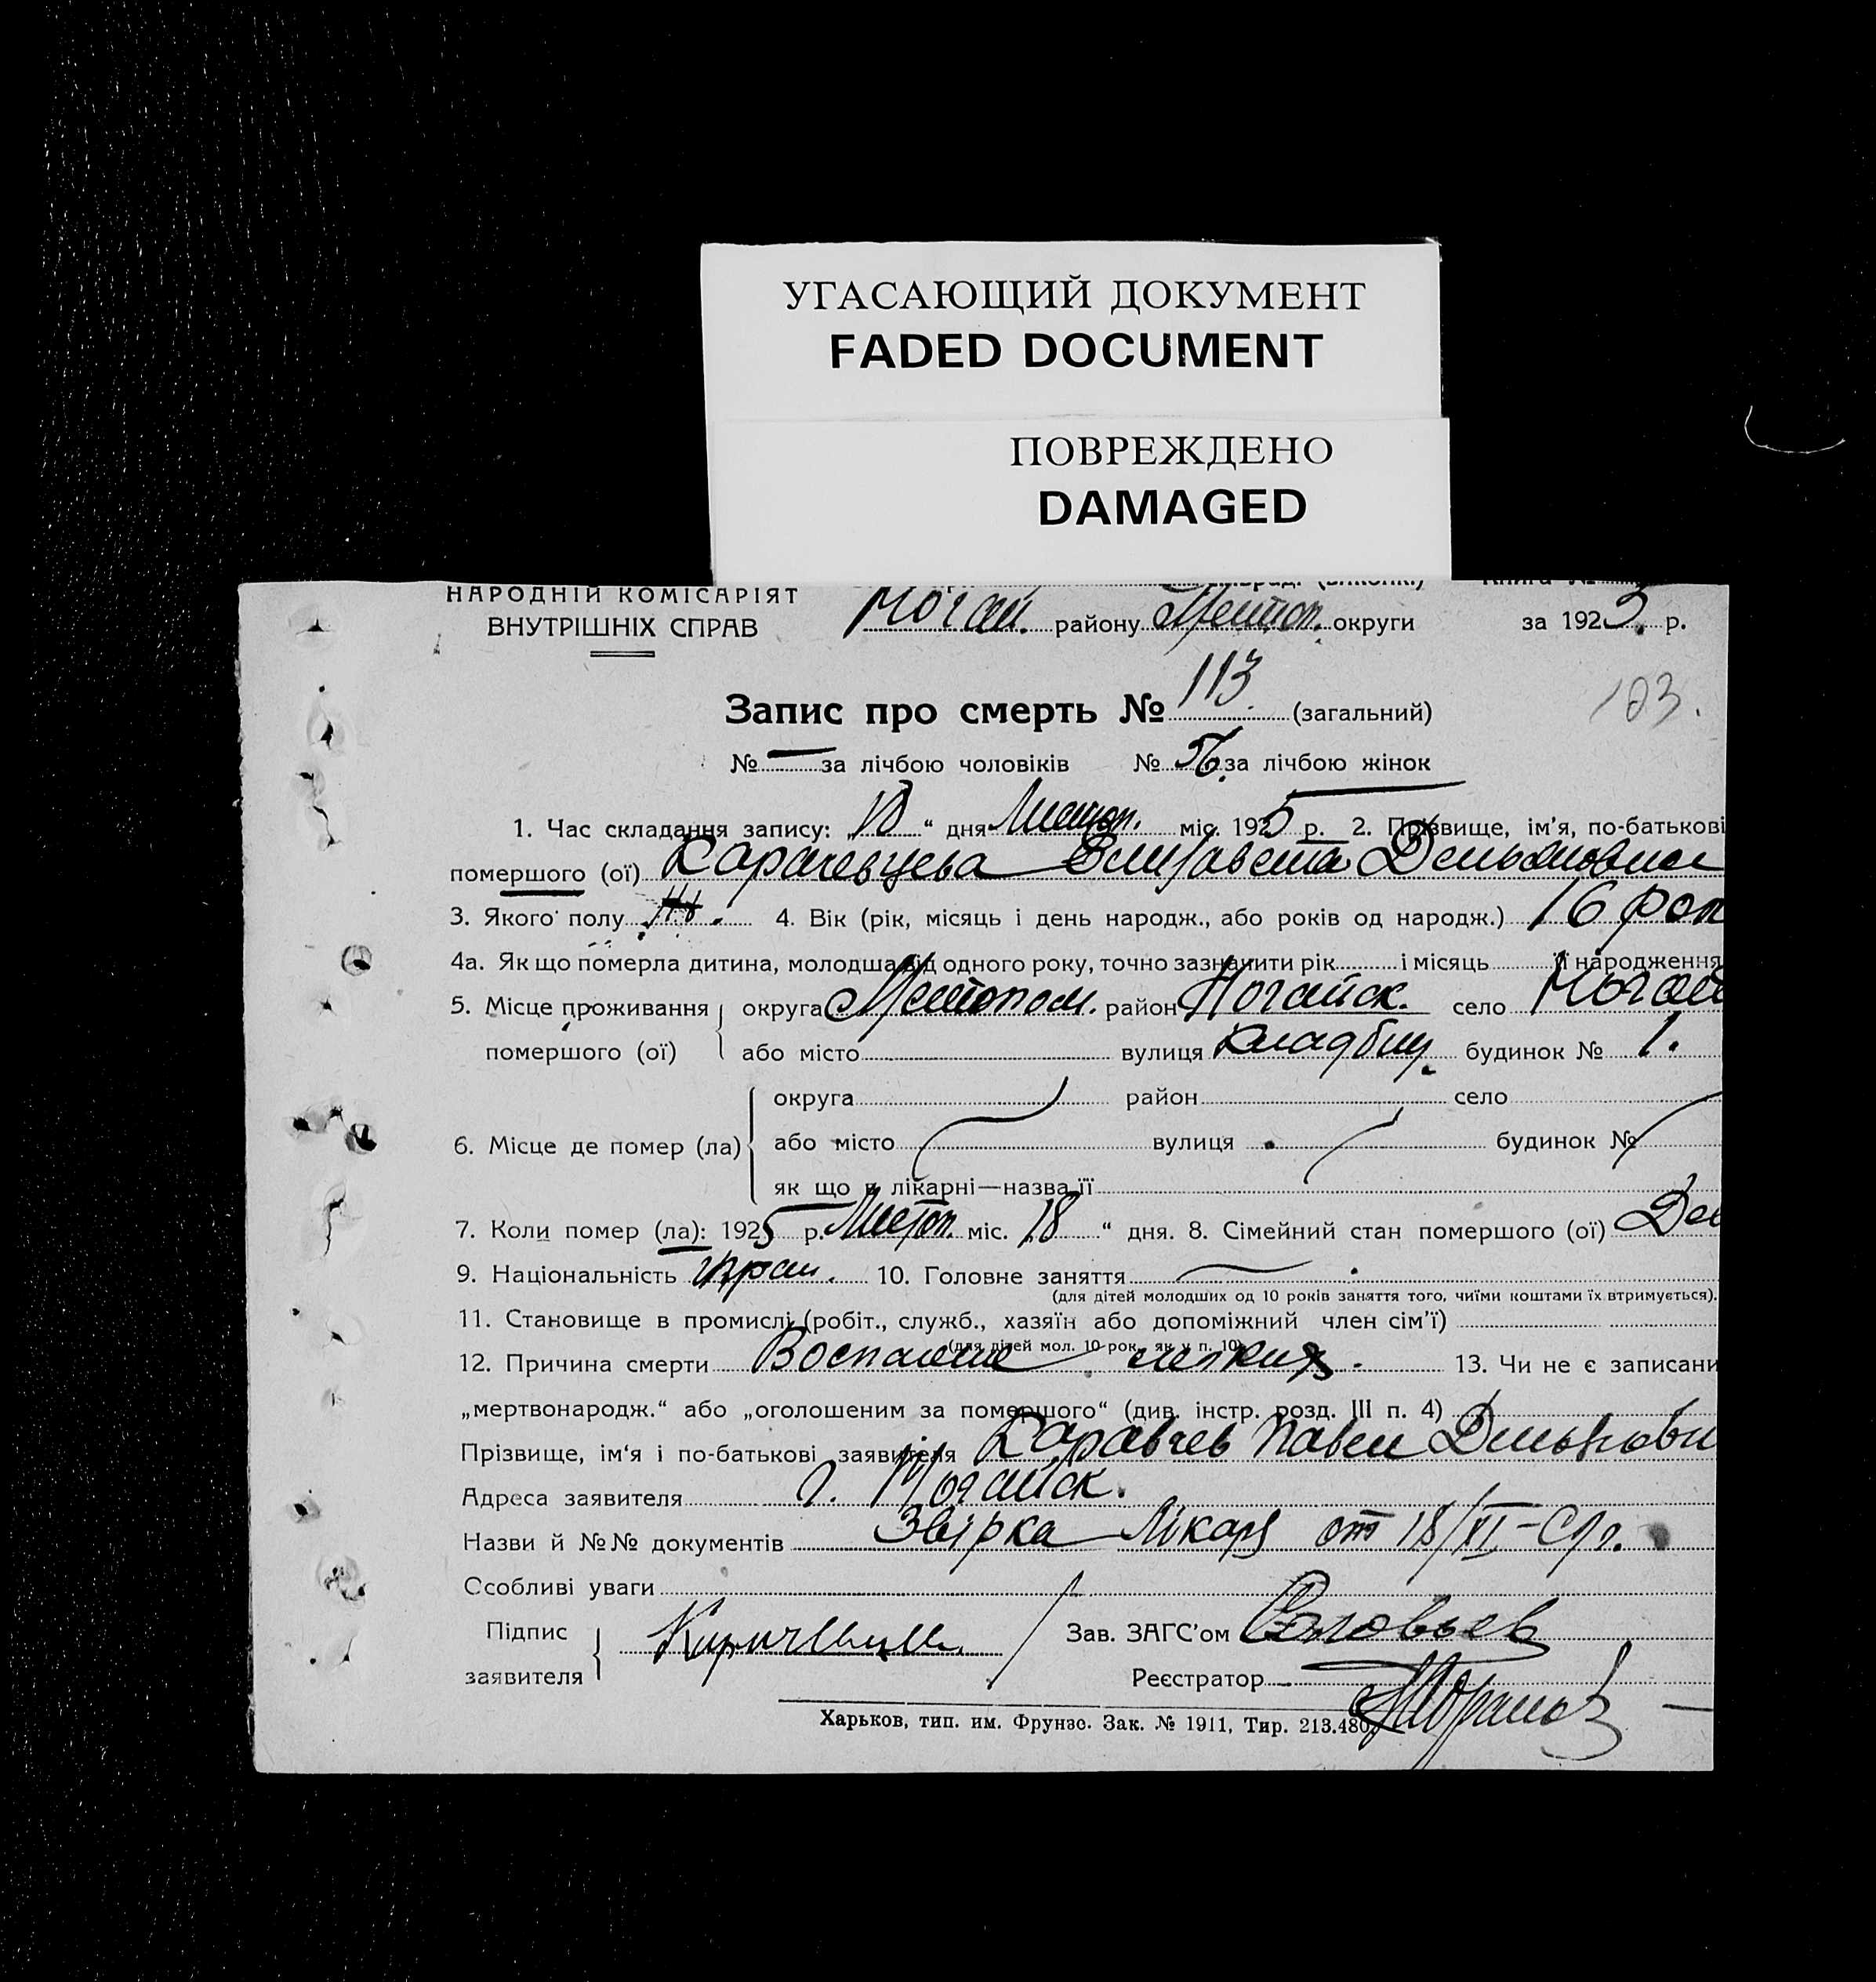 УГАСАЮЩИЙ ДОКУМЕНТ
FADED DOCUMENT
ПОВРЕЖДЕНО
DAMAGED
НАРОДНІЙ КОМІСАРІЯТ
ВНУТРІШНІХ СПРАВ
Ногай. району Мелітоп. округи за 1925 р.
103.
Запис про смерть № 113. (загальний)
№ — за лічбою чоловіків № 56. за лічбою жінок
1. Час складання запису: „18“ дня Листоп. міс. 1925 р. 2. Прізвище, ім'я, по-батькові
помершого (ої) Карачевцева Елизавета Демьяновна
3. Якого полу Ж. 4. Вік (рік, місяць і день народж., або років од народж.) 16 рок
4а. Як що померла дитина, молодша від одного року, точно зазначити рік і місяць її народження
5. Місце проживання округа Мелітопол. район Ногайск. село Ногай
помершого (ої) або місто вулиця Кладбищ. будинок № 1.
округа район село
6. Місце де помер (ла) або місто вулиця будинок №
як що в лікарні—назва її
7. Коли помер (ла): 1925 р. Листоп. міс. „18“ дня. 8. Сімейний стан помершого (ої)
9. Національність Украи. 10. Головне заняття
(для дітей молодших од 10 років заняття того, чиїми коштами їх втримується).
11. Становище в промислі (робіт., служб., хазяїн або допоміжний член сім'ї)
(для дітей мол. 10 рок. як у п. 10)
12. Причина смерти Воспаление легких. 13. Чи не є записани
„мертвонародж.“ або „оголошеним за помершого“ (див. інстр. розд. III п. 4)
Прізвище, ім'я і по-батькові заявителя Павел Демьянови
Адреса заявителя г. Ногайск.
Назви й №№ документів Звірка Лікаря от 18/XI – с/г.
Особливі уваги
Підпис
заявителя
Зав. ЗАГС'ом Соловьев
Реєстратор
Харьков, тип. им. Фрунзе. Зак. № 1911, Тир. 213.480.